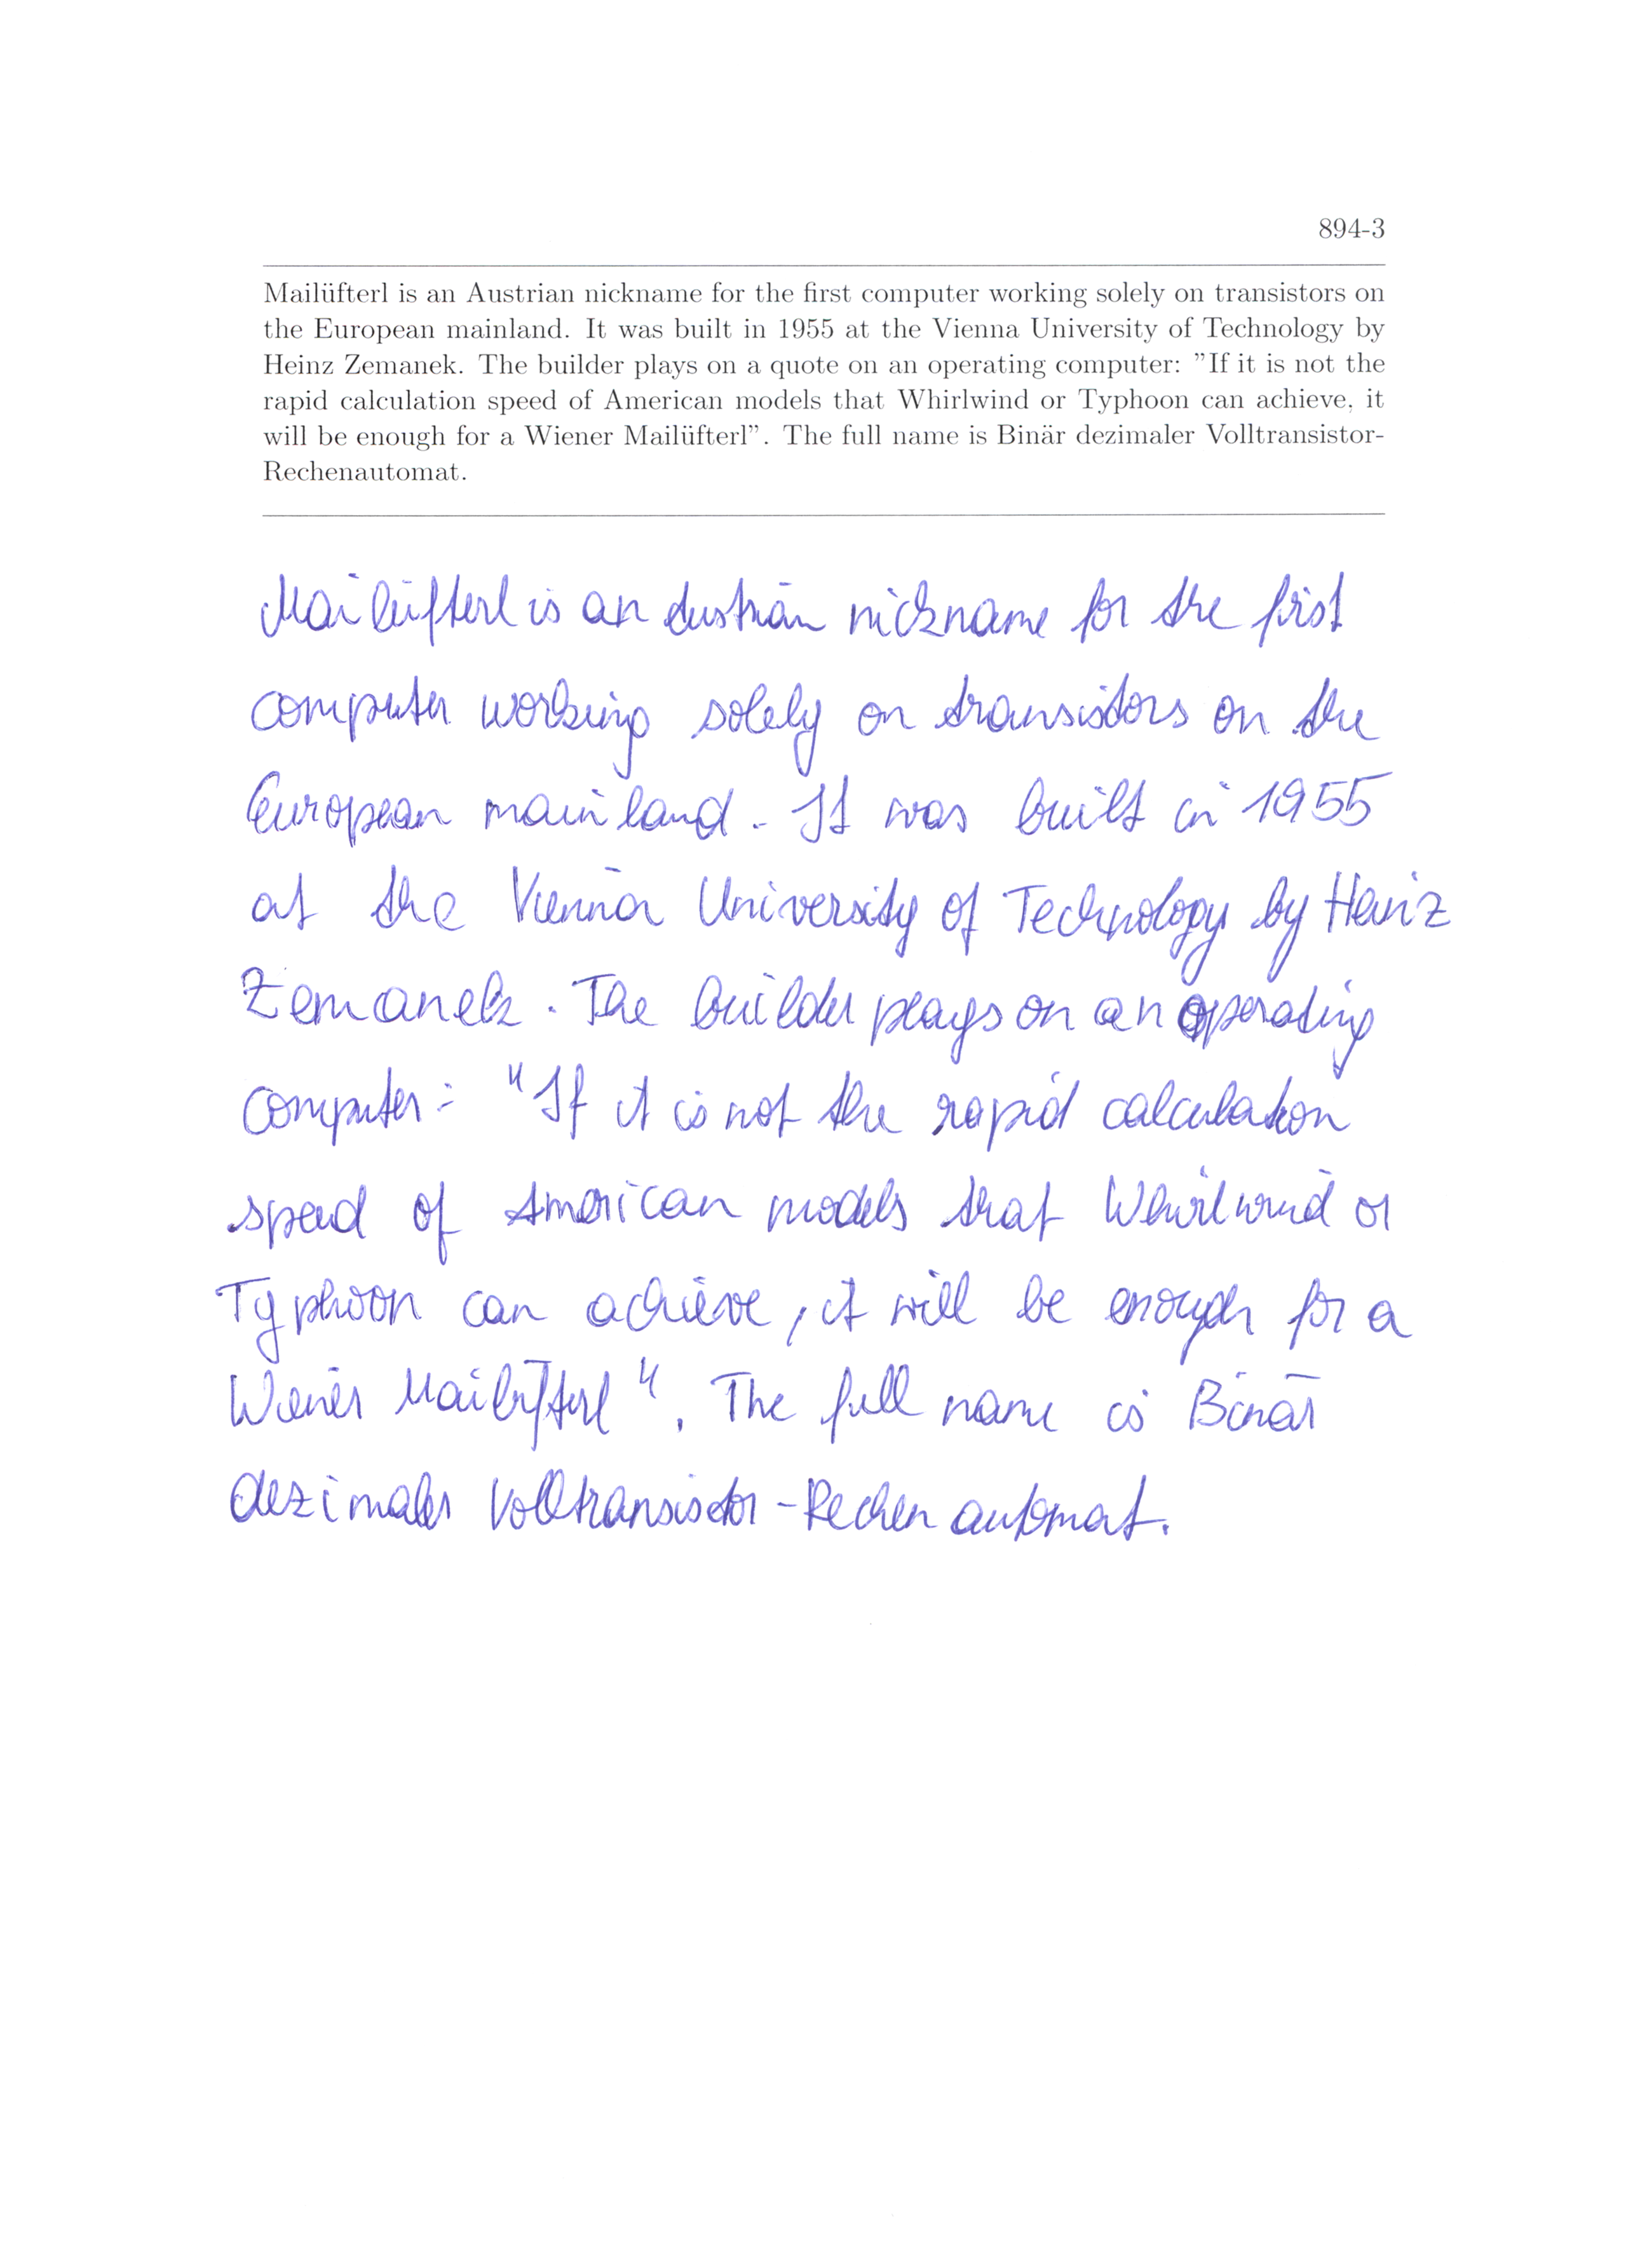 894-3
Mailüfterl is an Austrian nickname for the first computer working solely on transistors on
the European mainland. It was built in 1955 at the Vienna University of Technology by
Heinz Zemanek. The builder plays on a quote on an operating computer: ”If it is not the
rapid calculation speed of American models that Whirlwind or Typhoon can achieve, it
will be enough for a Wiener Mailüfterl”. The full name is Binär dezimaler Volltransistor-
Rechenautomat.
Mailüfterl is an Austrian nickname for the first
computer working solely on transistors on the
European mainland. It was built in 1955
at the Vienna University of Technology by Heinz
Zemanek. The builder plays on an operating
computer: "If it is not the rapid calculation
speed of American models that Whirlwind or
Typhoon can achieve, it will be enough for a
Wiener Mailüfterl". The full name is Binär
dezimaler Volltransistor-Rechenautomat.